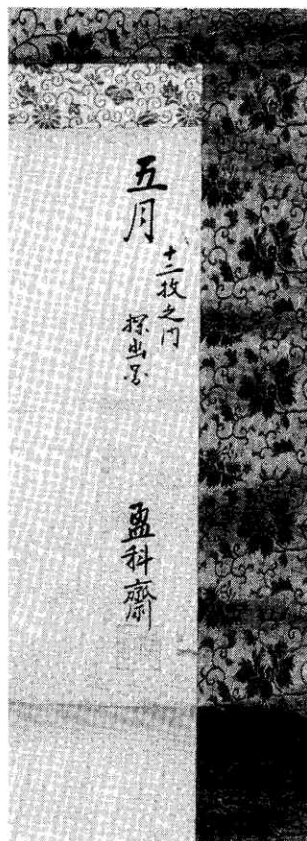 五月
十二枚之内
探出图
盈科齋